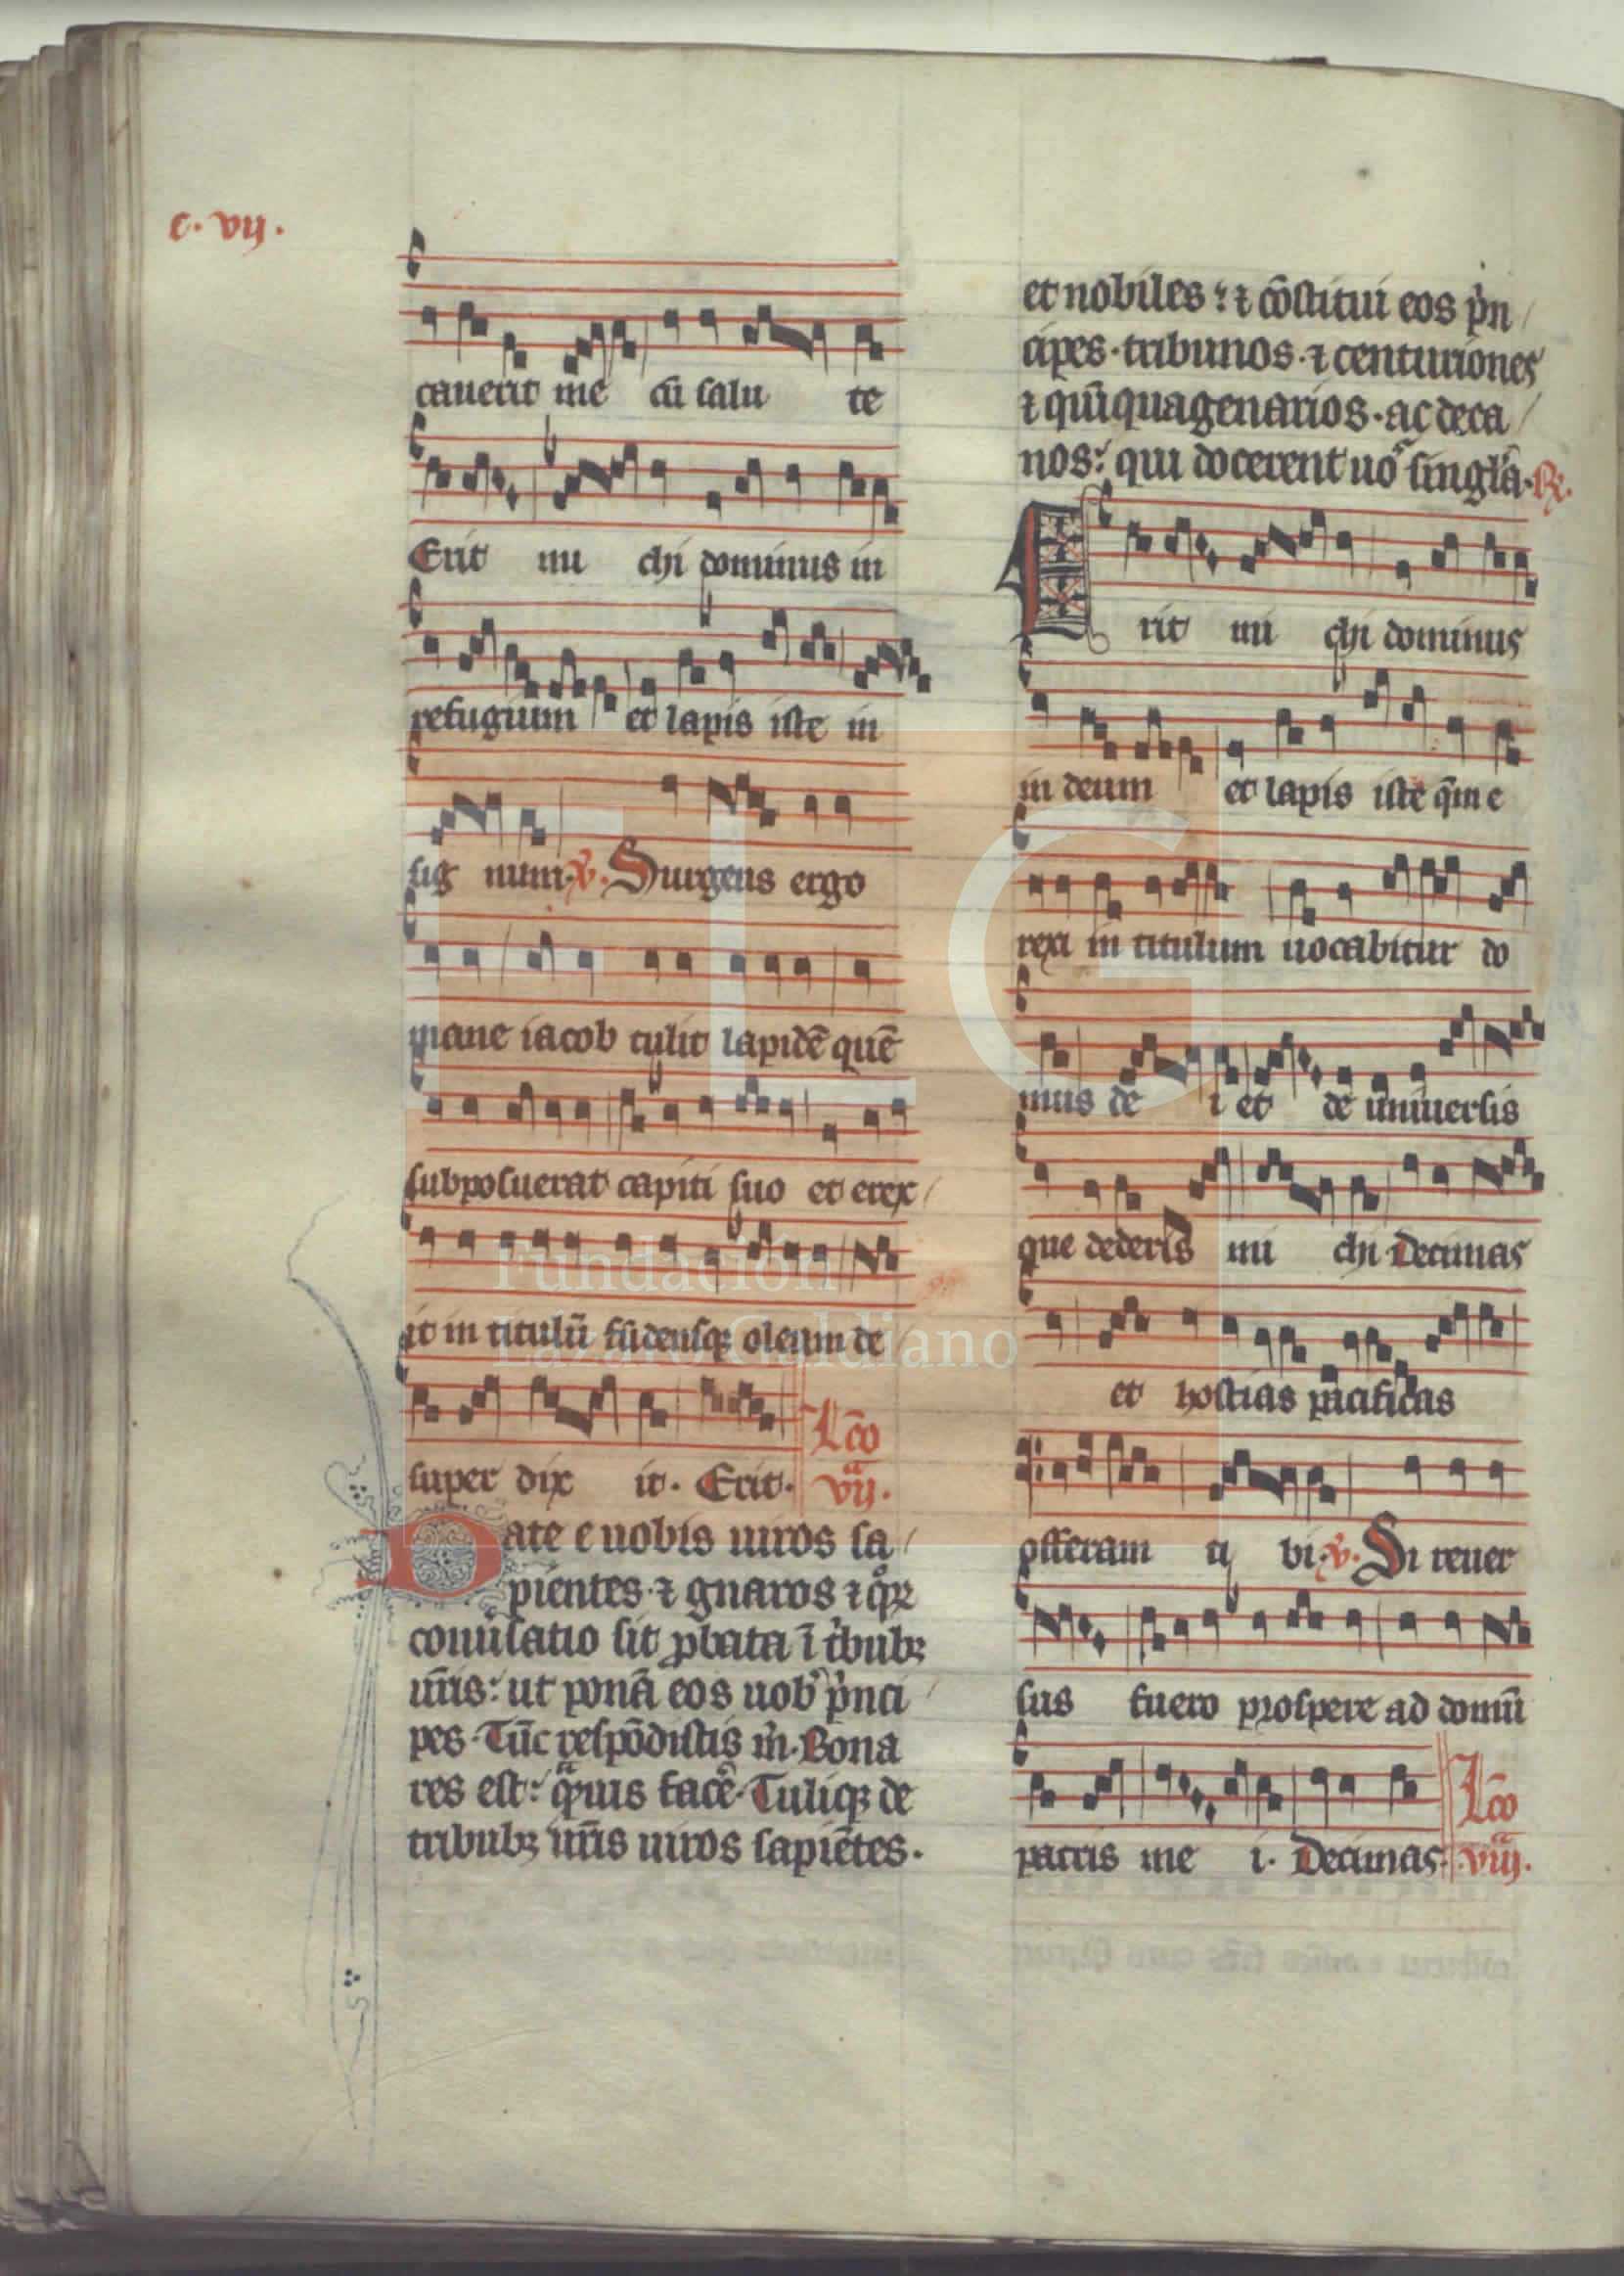 c. vij.
cauerit me cū salu te
Erit mi chi dominus in
refugium et lapis iste in
sig num. ℣. Surgens ergo
mane iacob tulit lapidē quē
subposuerat capiti suo et erex
it in titulū fūdensqꝫ oleum de
super dix it. Erit. Lc̄o
vijᵃ.
Date e nobis uiros sa
pientes ⁊ gnaros ⁊ qͦꝝ
conuͥsatio sit ꝓbata ī tͥbubꝫ
ur̄is: ut ponā eos uob' pͥnci
pes. Tūc respōdistis m̄. Bona
res est: qͣꝫ uis facē. Tuliqꝫ de
tribubꝫ ur̄is uiros sapiētes.
et nobiles: ⁊ cōstitui eos pͥn
cipes. tribunos. ⁊ centuriones
⁊ quīquagenarios. ac deca
nos: qui docerent uoˢ singl̄a. ℟.
Erit mi chi dominus
in deum et lapis iste q̄m e
rexi in titulum uocabitur do
mus de i et de uniuersis
que dederis mi chi Decimas
et hostias pacificas
offeram ti bi. ℣. Si reuer
sus fuero prospere ad domū
patris me i. Decimas. Lc̄o
viijᵃ.
Fundación
Lázaro Galdiano
FLG